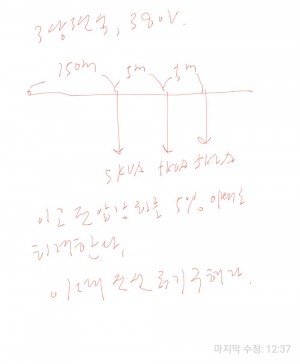 3상3선식, 380V.
150m 5m 5m
5KVA 5KVA 5KVA
이고 전압강하를 5% 이내로
하려한다,
이때 전선 굵기 구해라.
마지막 수정: 12:37